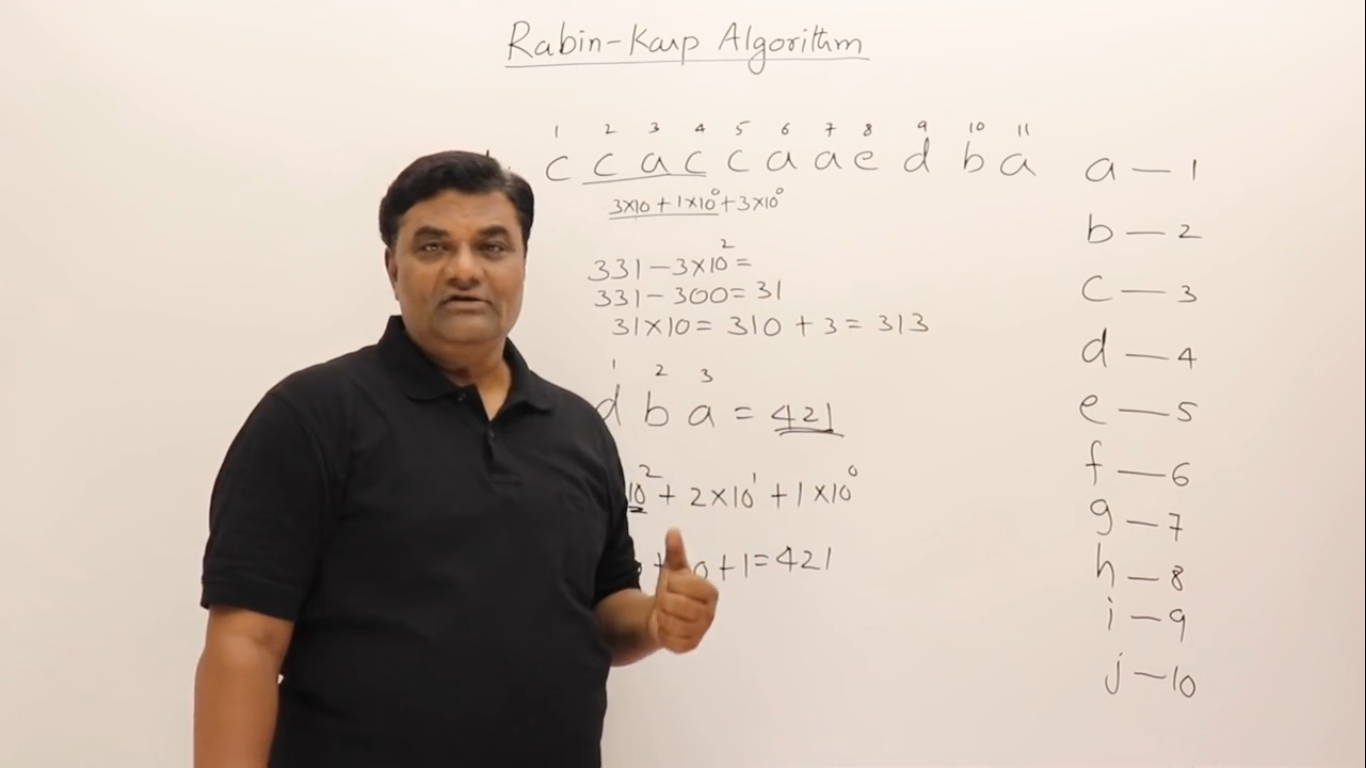 Rabin-Karp Algorithm
1 2 3 4 5 6 7 8 9 10 11
c c a c c a a e d b a
3×10 + 1×10⁰ + 3×10⁰
331 - 3×10² =
331 - 300 = 31
31×10 = 310 + 3 = 313
1 2 3
d b a = 421
10² + 2×10¹ + 1×10⁰
+ 1 = 421
a — 1
b — 2
c — 3
d — 4
e — 5
f — 6
g — 7
h — 8
i — 9
j — 10